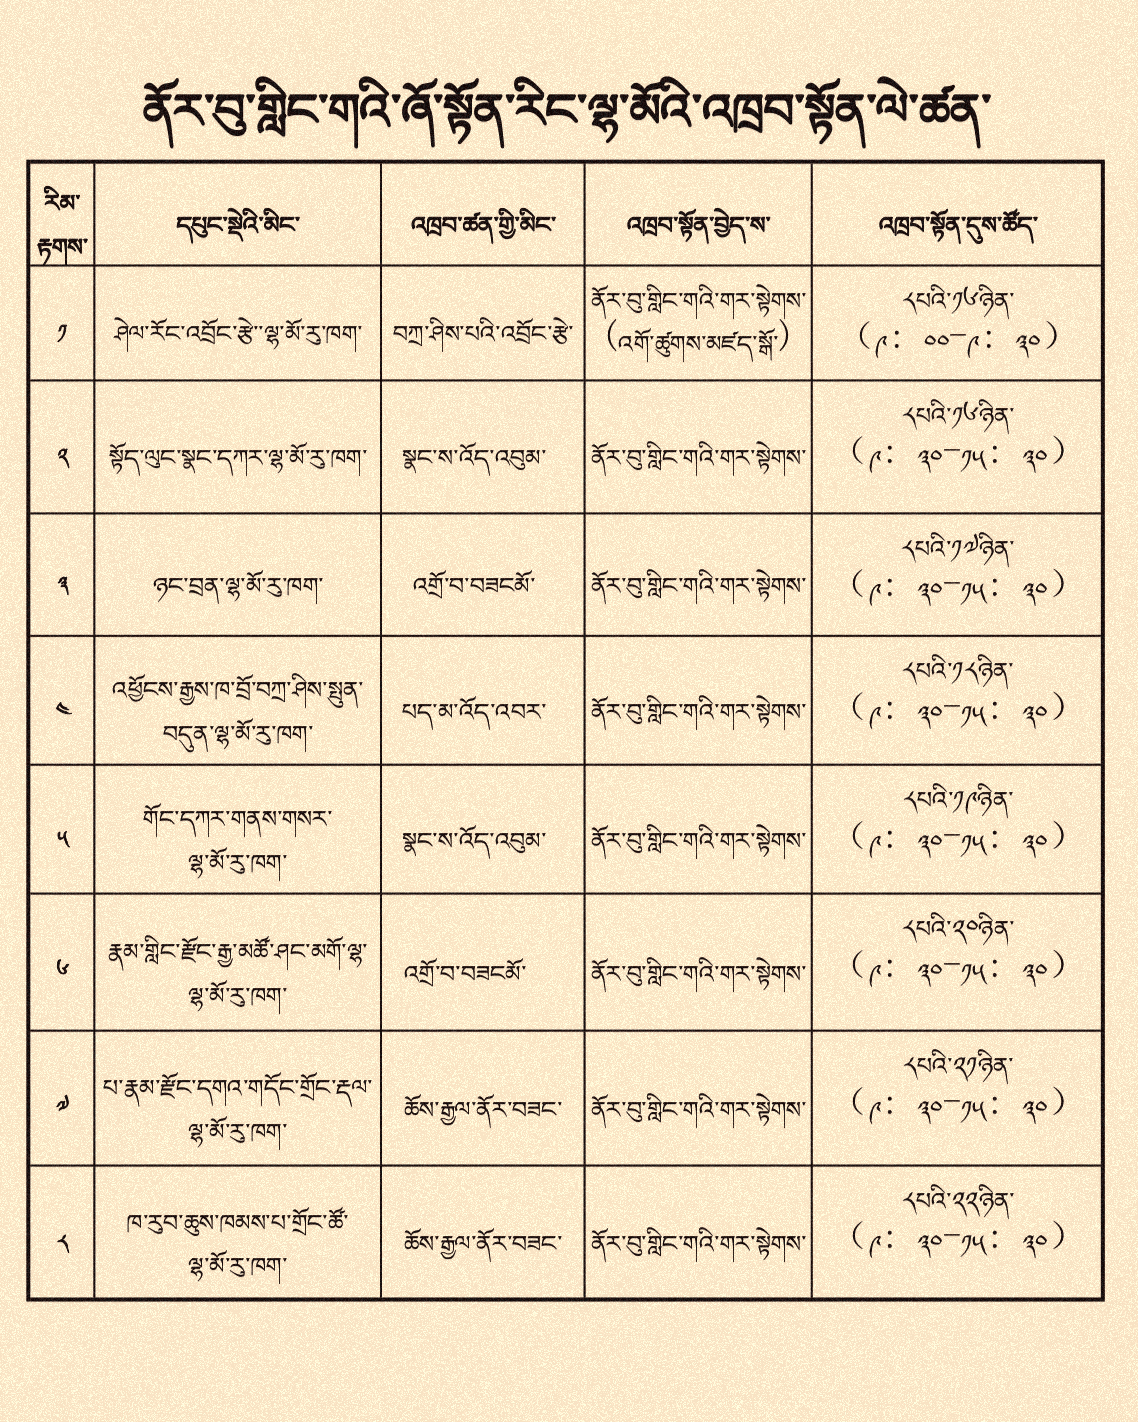 ནོར་བུ་གླིང་གའི་ཞོ་སྟོན་རིང་ལྷ་མོའི་འཁྲབ་སྟོན་ལེ་ཚན་
རིམ་
རྟགས་
དཔུང་སྡེའི་མིང་
འཁྲབ་ཚན་གྱི་མིང་
འཁྲབ་སྟོན་བྱེད་ས་
འཁྲབ་སྟོན་དུས་ཚོད་
༡
ཤེལ་རོང་འབྲོང་རྩེ་་ལྷ་མོ་རུ་ཁག་
བཀྲ་ཤིས་པའི་འབྲོང་རྩེ་
ནོར་བུ་གླིང་གའི་གར་སྟེགས་
(འགོ་ཚུགས་མཛད་སྒོ་)
༨པའི་༡༦ཉིན་
(༩: ༠༠—༩: ༣༠)
༢
སྟོད་ལུང་སྣང་དཀར་ལྷ་མོ་རུ་ཁག་
སྣང་ས་འོད་འབུམ་
ནོར་བུ་གླིང་གའི་གར་སྟེགས་
༨པའི་༡༦ཉིན་
(༩: ༣༠—༡༥: ༣༠)
༣
ཉང་བྲན་ལྷ་མོ་རུ་ཁག་
འགྲོ་བ་བཟངམོ་
ནོར་བུ་གླིང་གའི་གར་སྟེགས་
༨པའི་༡༧ཉིན་
(༩: ༣༠—༡༥: ༣༠)
༤
འཕྱོངས་རྒྱས་ཁ་བྲོ་བཀྲ་ཤིས་སྤུན་
བདུན་ལྷ་མོ་རུ་ཁག་
པད་མ་འོད་འབར་
ནོར་བུ་གླིང་གའི་གར་སྟེགས་
༨པའི་༡༨ཉིན་
(༩: ༣༠—༡༥: ༣༠)
༥
གོང་དཀར་གནས་གསར་
ལྷ་མོ་རུ་ཁག་
སྣང་ས་འོད་འབུམ་
ནོར་བུ་གླིང་གའི་གར་སྟེགས་
༨པའི་༡༩ཉིན་
(༩: ༣༠—༡༥: ༣༠)
༦
རྣམ་གླིང་རྫོང་རྒྱ་མཚོ་ཤང་མགོ་ལྷ་
ལྷ་མོ་རུ་ཁག་
འགྲོ་བ་བཟངམོ་
ནོར་བུ་གླིང་གའི་གར་སྟེགས་
༨པའི་༢༠ཉིན་
(༩: ༣༠—༡༥: ༣༠)
༧
པ་རྣམ་རྫོང་དགའ་གདོང་གྲོང་རྡལ་
ལྷ་མོ་རུ་ཁག་
ཆོས་རྒྱལ་ནོར་བཟང་
ནོར་བུ་གླིང་གའི་གར་སྟེགས་
༨པའི་༢༡ཉིན་
(༩: ༣༠—༡༥: ༣༠)
༨
ཁ་རུབ་ཆུས་ཁམས་པ་གྲོང་ཚོ་
ལྷ་མོ་རུ་ཁག་
ཆོས་རྒྱལ་ནོར་བཟང་
ནོར་བུ་གླིང་གའི་གར་སྟེགས་
༨པའི་༢༢ཉིན་
(༩: ༣༠—༡༥: ༣༠)